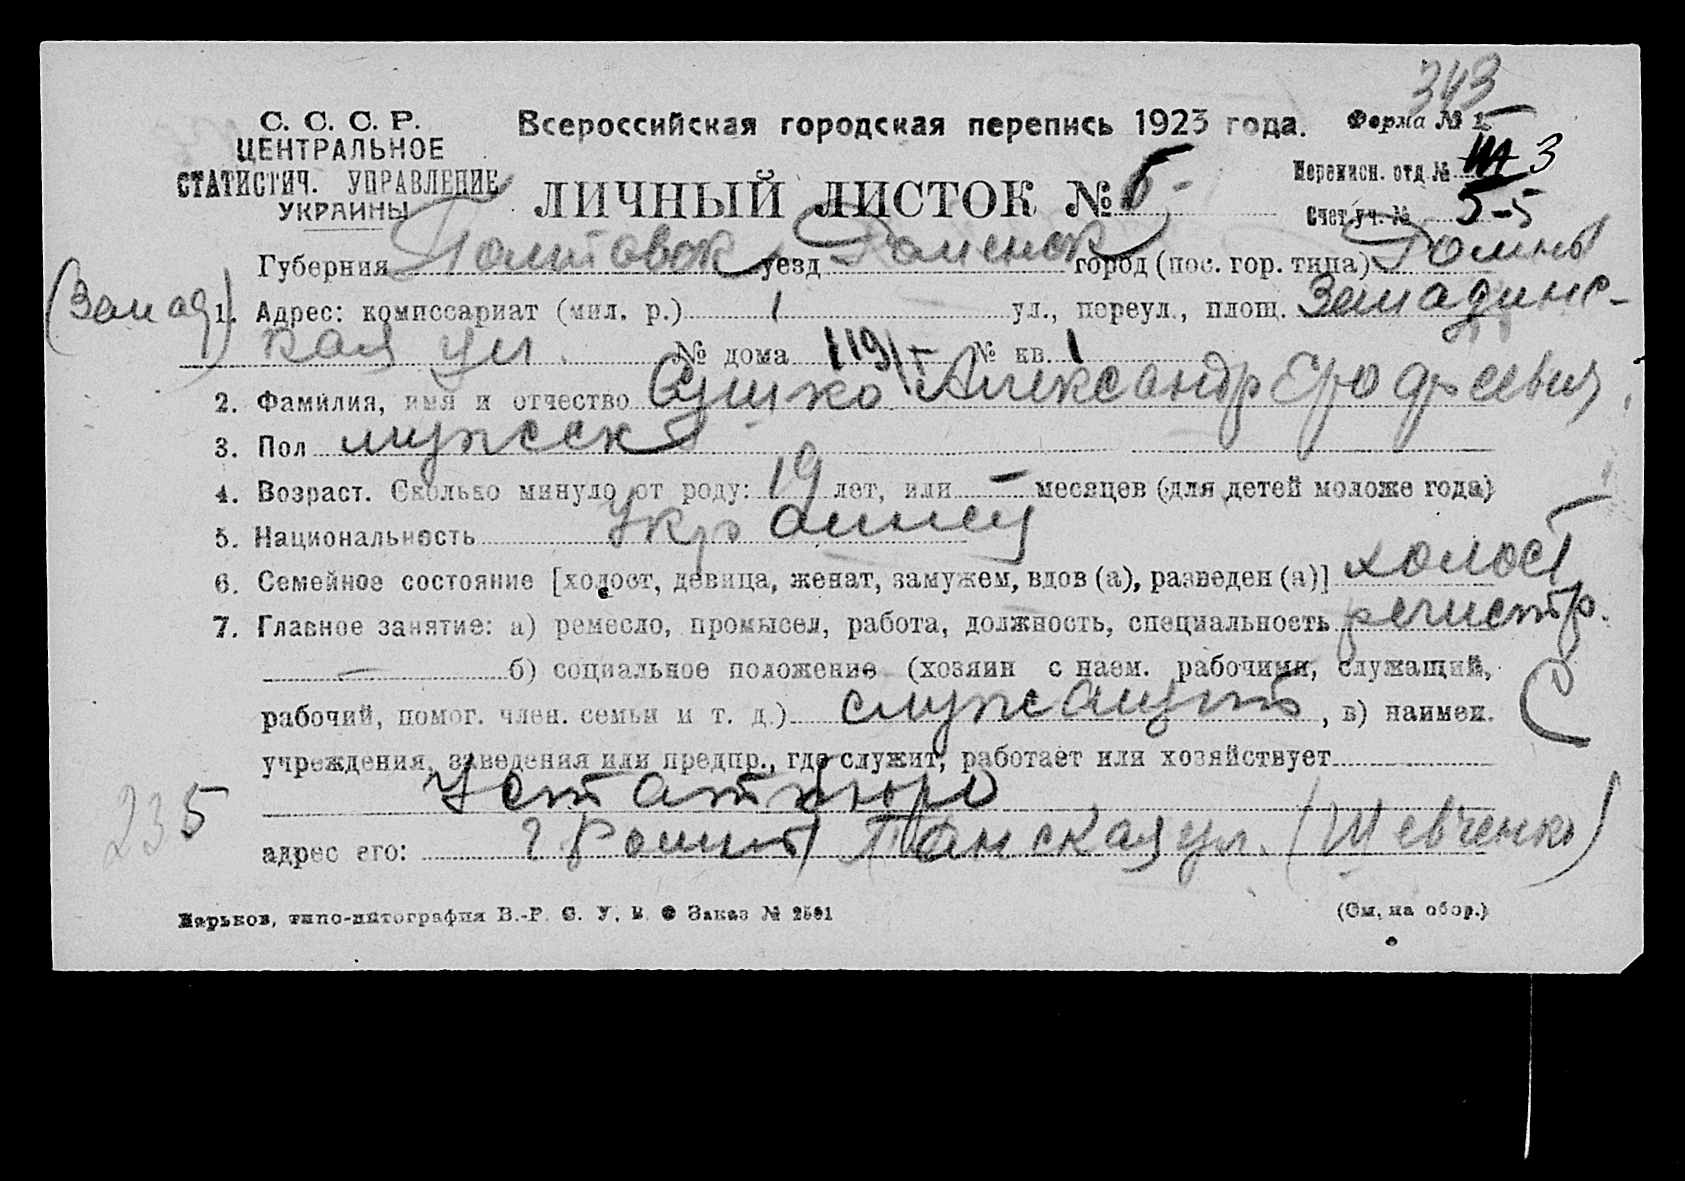 343
С. С. С. Р.
ЦЕНТРАЛЬНОЕ
СТАТИСТИЧ. УПРАВЛЕНИЕ
УКРАИНЫ
Всероссийская городская перепись 1923 года.
Форма № 1
ЛИЧНЫЙ ЛИСТОК №
Переписн. отд. № 3
Счет. уч. № 5-5
Губерния Полтавск уезд Роменск город (пос. гор. типа) Ромны
(Запад)
1. Адрес: комиссариат (мил. р.) 1 ул., переул., площ. Западинс-
кая ул. № дома 119 № кв. 1
2. Фамилия, имя и отчество Сушко Александр Ерофеевич
3. Пол мужск
4. Возраст. Сколько минуло от роду: 19 лет, или — месяцев (для детей моложе года)
5. Национальность Украинец
6. Семейное состояние [холост, девица, женат, замужем, вдов (а), разведен (а)] холост
7. Главное занятие: а) ремесло, промысел, работа, должность, специальность регистр.
— б) социальное положение (хозяин с наем. рабочими, служащий,
рабочий, помог. член. семьи и т. д.) служащий, в) наимен. С
учреждения, заведения или предпр., где служит, работает или хозяйствует
Устатбюро
235
адрес его: г Ромны Панская ул. (Шевченко)
Харьков, типо-литография В.-Р. С. У. В. Заказ № 2591
(См. на обор.)